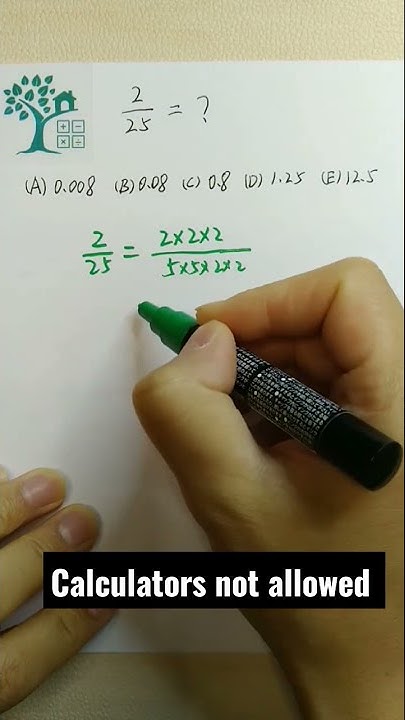 2/25 = ?
(A) 0.008 (B) 0.08 (C) 0.8 (D) 1.25 (E) 12.5
2/25 = 2×2×2/5×5×2×2
Calculators not allowed